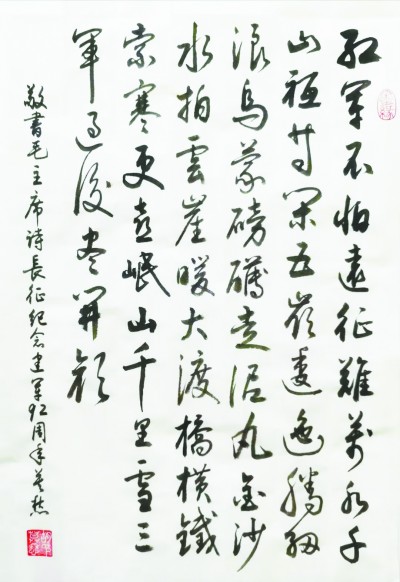 紅軍不怕遠征難萬水千
山祇等閑五嶺逶迤騰細
浪烏蒙磅礴走泥丸金沙
水拍雲崖暖大渡橋橫鐵
索寒更喜岷山千里雪三
軍過後盡開顏
敬書毛主席詩長征紀念建軍92周年